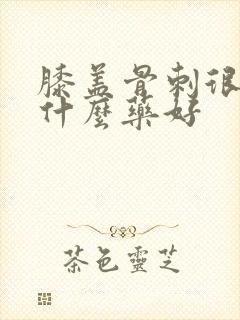 膝盖骨刺很
什麼藥好
茶色靈芝